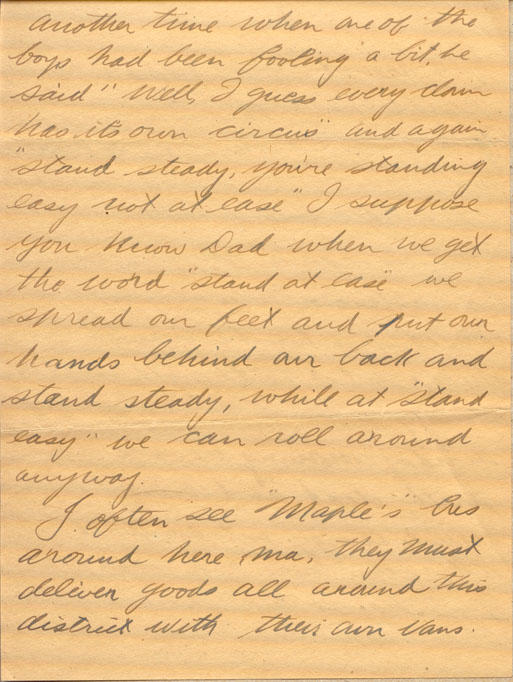 another time when one of the
boys had been fooling a bit, he
said "Well, I guess every clown
has its own circus" and again
"stand steady, you're standing
easy not at ease" I suppose
you know Dad when we get
the word "stand at ease" we
spread our feet and put our
hands behind our back and
stand steady, while at "stand
easy" we can roll around
anyway.
I often see "Maple's"
around here, ma, they must
deliver goods all around this
district with their own vans.